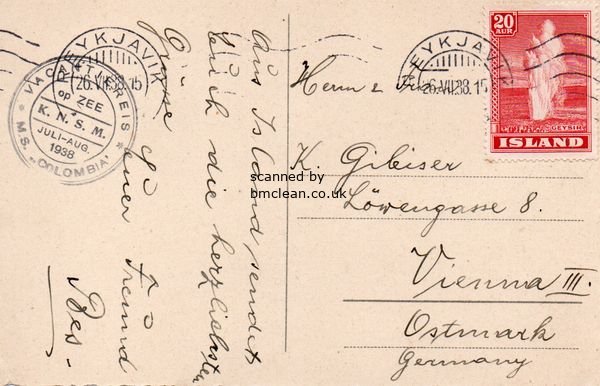 Aus Island sendet
Euch die herzlichsten
Grüsse Euer Freund
Bes-
VACANTIEREIS
op ZEE
K. N. S. M.
JULI-AUG.
1938
M.S. „COLOMBIA"
REYKJAVIK
26.VII.38.15
REYKJAVIK
26.VII.38.15
20
AUR
GEYSIR
ISLAND
Herrn & Frau
K. Gibiser
Löwengasse 8.
Vienna III.
Ostmark
Germany
scanned by
bmclean.co.uk